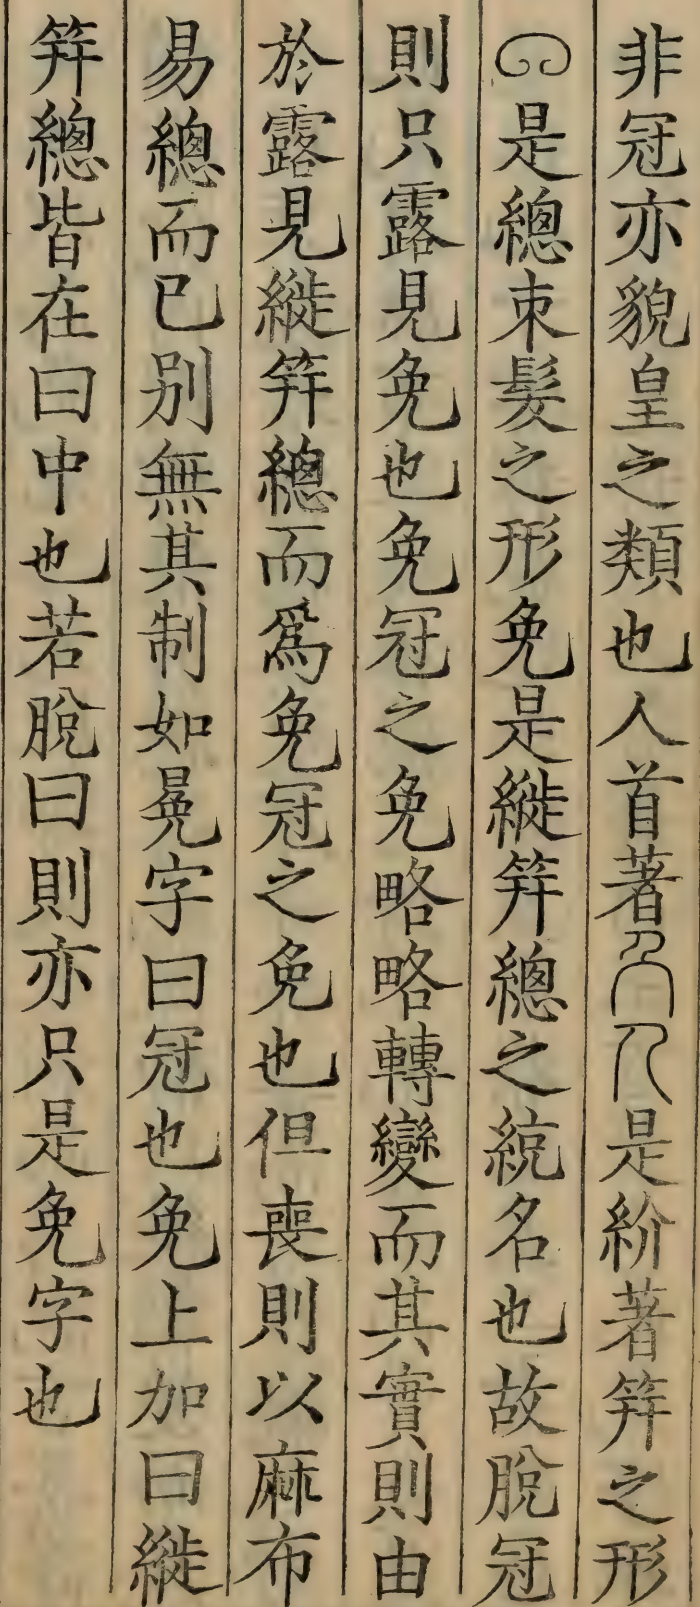 非冠亦貌皇之類也人首著是紒著筓之形
是總束髮之形免是縰筓總之統名也故脫冠
則只露見免也免冠之免略略轉變而其實則由
於露見縰筓總而爲免冠之免也但喪則以麻布
易總而已別無其制如冕字曰冠也免上加曰縰
筓總皆在曰中也若脫曰則亦只是免字也